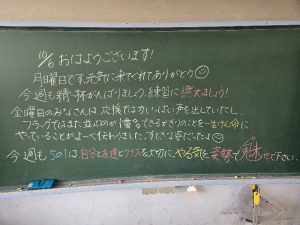 10/6 おはようございます!
月曜日です。元気に来てくれてありがとう
今週も精一杯がんばりましょう。練習に燃えましょう!
金曜日のみなさんは、応援では力いっぱい声を出していたし、
フラッグではまた
できるかぎりのことを一生けん命に
やっていることがよーく伝わりました。すてきな姿だったよ
今週も 5の1は自分と友達とクラスを大切に、やる気を姿勢で魅せて下さい。